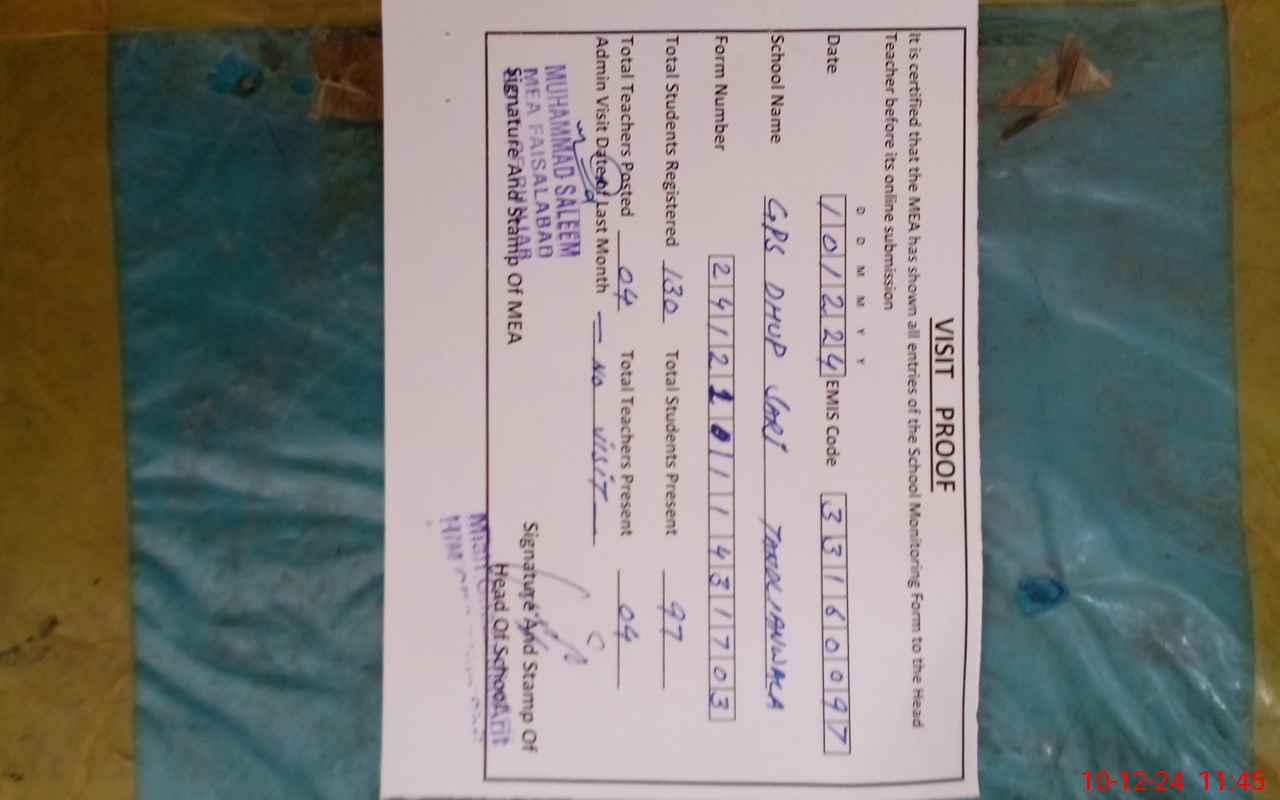 VISIT PROOF
It is certified that the MEA has shown all entries of the School Monitoring Form to the Head
Teacher before its online submission
D D M M Y Y
Date 101224 EMIS Code 33160097
School Name GPS DHUP SARI TANDLIANWALA
Form Number 241210111431703
Total Students Registered 130 Total Students Present 97
Total Teachers Posted 04 Total Teachers Present 04
Admin Visit Date of Last Month — NO VISIT —
MUHAMMAD SALEEM
MEA FAISALABAD
Signature And Stamp Of MEA
Signature And Stamp Of
Head Of School
10-12-24 11:45